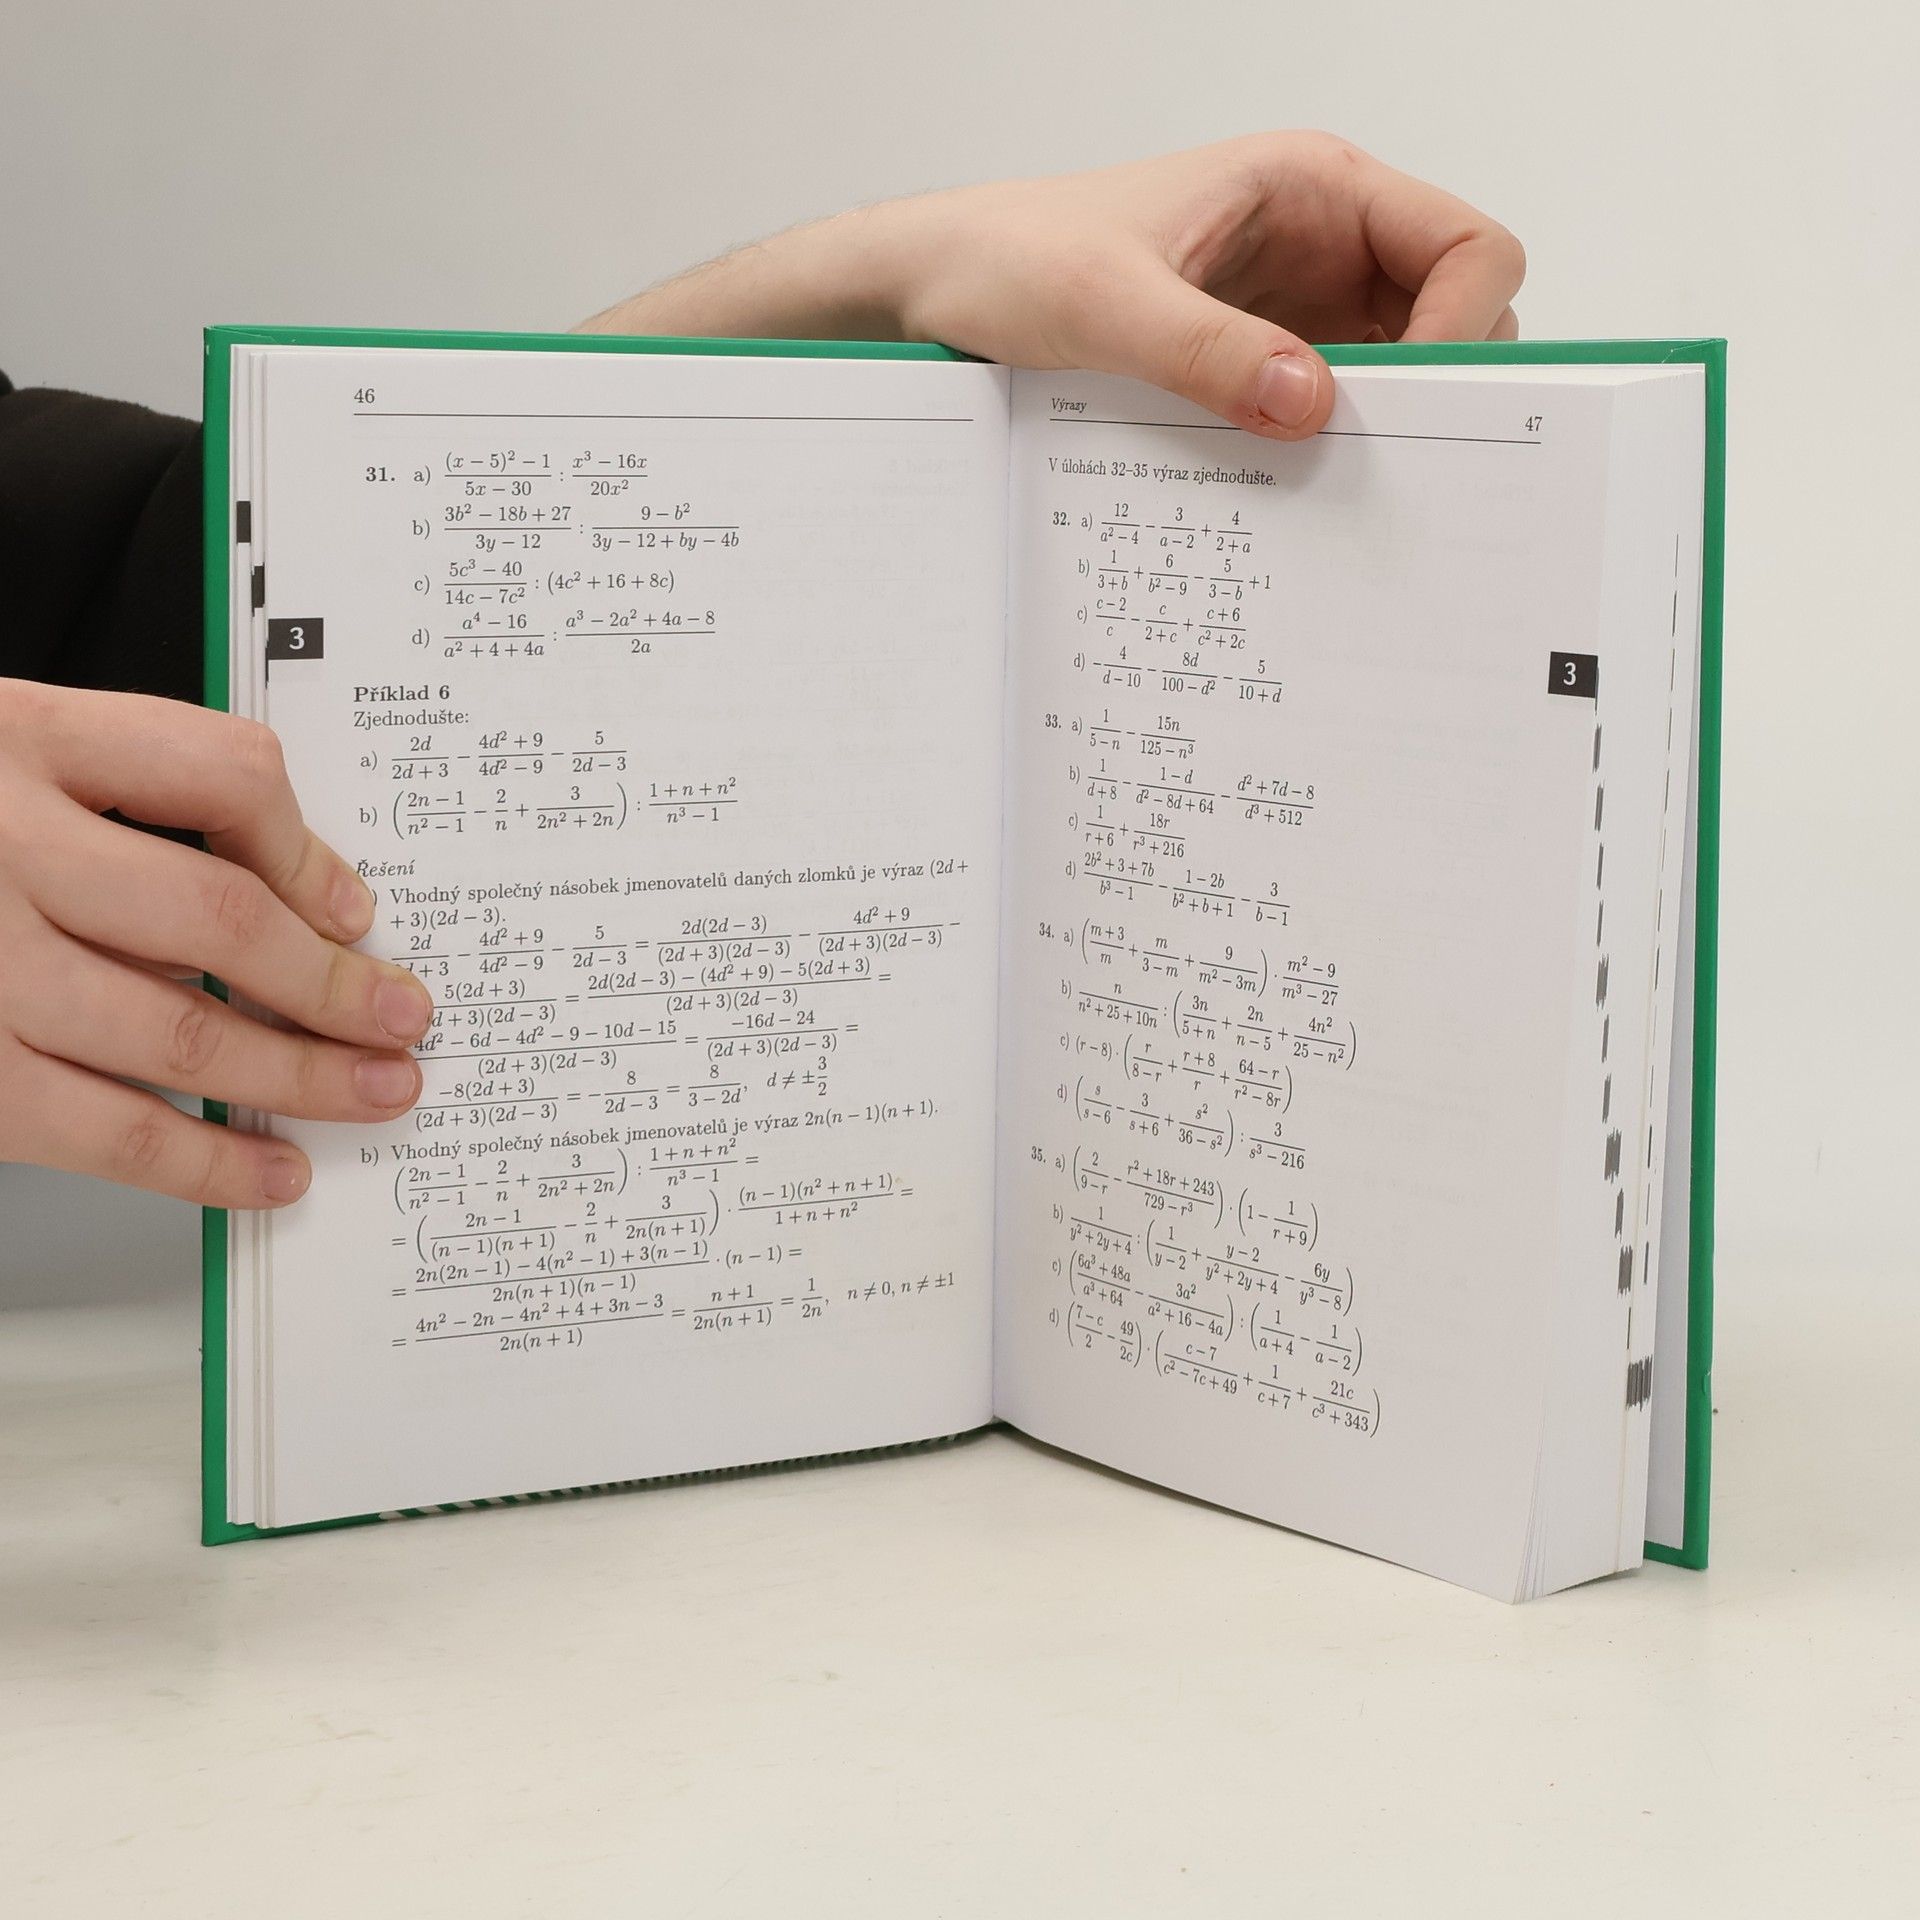 46
31. a) \frac{(x-5)^2-1}{5x-30} : \frac{x^3-16x}{20x^2}
b) \frac{3b^2-18b+27}{3y-12} : \frac{9-b^2}{3y-12+by-4b}
c) \frac{5c^3-40}{14c-7c^2} : (4c^2+16+8c)
d) \frac{a^4-16}{a^2+4+4a} : \frac{a^3-2a^2+4a-8}{2a}
3
Příklad 6
Zjednodušte:
a) \frac{2d}{2d+3} - \frac{4d^2+9}{4d^2-9} - \frac{5}{2d-3}
b) \left(\frac{2n-1}{n^2-1} - \frac{2}{n} + \frac{3}{2n^2+2n}\right) : \frac{1+n+n^2}{n^3-1}
Řešení
) Vhodný společný násobek jmenovatelů daných zlomků je výraz (2d+
+3)(2d-3).
\frac{2d}{d+3} - \frac{4d^2+9}{4d^2-9} - \frac{5}{2d-3} = \frac{2d(2d-3)}{(2d+3)(2d-3)} - \frac{4d^2+9}{(2d+3)(2d-3)} -
\frac{5(2d+3)}{d+3)(2d-3)} = \frac{2d(2d-3)-(4d^2+9)-5(2d+3)}{(2d+3)(2d-3)} =
\frac{4d^2-6d-4d^2-9-10d-15}{(2d+3)(2d-3)} = \frac{-16d-24}{(2d+3)(2d-3)} =
\frac{-8(2d+3)}{(2d+3)(2d-3)} = -\frac{8}{2d-3} = \frac{8}{3-2d}, d ≠ ±\frac{3}{2}
b) Vhodný společný násobek jmenovatelů je výraz 2n(n-1)(n+1).
\left(\frac{2n-1}{n^2-1} - \frac{2}{n} + \frac{3}{2n^2+2n}\right) : \frac{1+n+n^2}{n^3-1} =
= \left(\frac{2n-1}{(n-1)(n+1)} - \frac{2}{n} + \frac{3}{2n(n+1)}\right) · \frac{(n-1)(n^2+n+1)}{1+n+n^2} =
= \frac{2n(2n-1)-4(n^2-1)+3(n-1)}{2n(n+1)(n-1)} · (n-1) =
= \frac{4n^2-2n-4n^2+4+3n-3}{2n(n+1)} = \frac{n+1}{2n(n+1)} = \frac{1}{2n}, n ≠ 0, n ≠ ±1
Výrazy 47
V úlohách 32–35 výraz zjednodušte.
32. a) \frac{12}{a^2-4} - \frac{3}{a-2} + \frac{4}{2+a}
b) \frac{1}{3+b} + \frac{6}{b^2-9} - \frac{5}{3-b} + 1
c) \frac{c-2}{c} - \frac{c}{2+c} + \frac{c+6}{c^2+2c}
d) -\frac{4}{d-10} - \frac{8d}{100-d^2} - \frac{5}{10+d}
3
33. a) \frac{1}{5-n} - \frac{15n}{125-n^3}
b) \frac{1}{d+8} - \frac{1-d}{d^2-8d+64} - \frac{d^2+7d-8}{d^3+512}
c) \frac{1}{r+6} + \frac{18r}{r^3+216}
d) \frac{2b^2+3+7b}{b^3-1} - \frac{1-2b}{b^2+b+1} - \frac{3}{b-1}
34. a) \left(\frac{m+3}{m} + \frac{m}{3-m} + \frac{9}{m^2-3m}\right) · \frac{m^2-9}{m^3-27}
b) \frac{n}{n^2+25+10n} : \left(\frac{3n}{5+n} + \frac{2n}{n-5} + \frac{4n^2}{25-n^2}\right)
c) (r-8) · \left(\frac{r}{8-r} + \frac{r+8}{r} + \frac{64-r}{r^2-8r}\right)
d) \left(\frac{s}{s-6} - \frac{3}{s+6} + \frac{s^2}{36-s^2}\right) : \frac{3}{s^3-216}
35. a) \left(\frac{2}{9-r} - \frac{r^2+18r+243}{729-r^3}\right) · \left(1 - \frac{1}{r+9}\right)
b) \frac{1}{y^2+2y+4} : \left(\frac{1}{y-2} + \frac{y-2}{y^2+2y+4} - \frac{6y}{y^3-8}\right)
c) \left(\frac{6a^3+48a}{a^3+64} - \frac{3a^2}{a^2+16-4a}\right) : \left(\frac{1}{a+4} - \frac{1}{a-2}\right)
d) \left(\frac{7-c}{2} - \frac{49}{2c}\right) · \left(\frac{c-7}{c^2-7c+49} + \frac{1}{c+7} + \frac{21c}{c^3+343}\right)